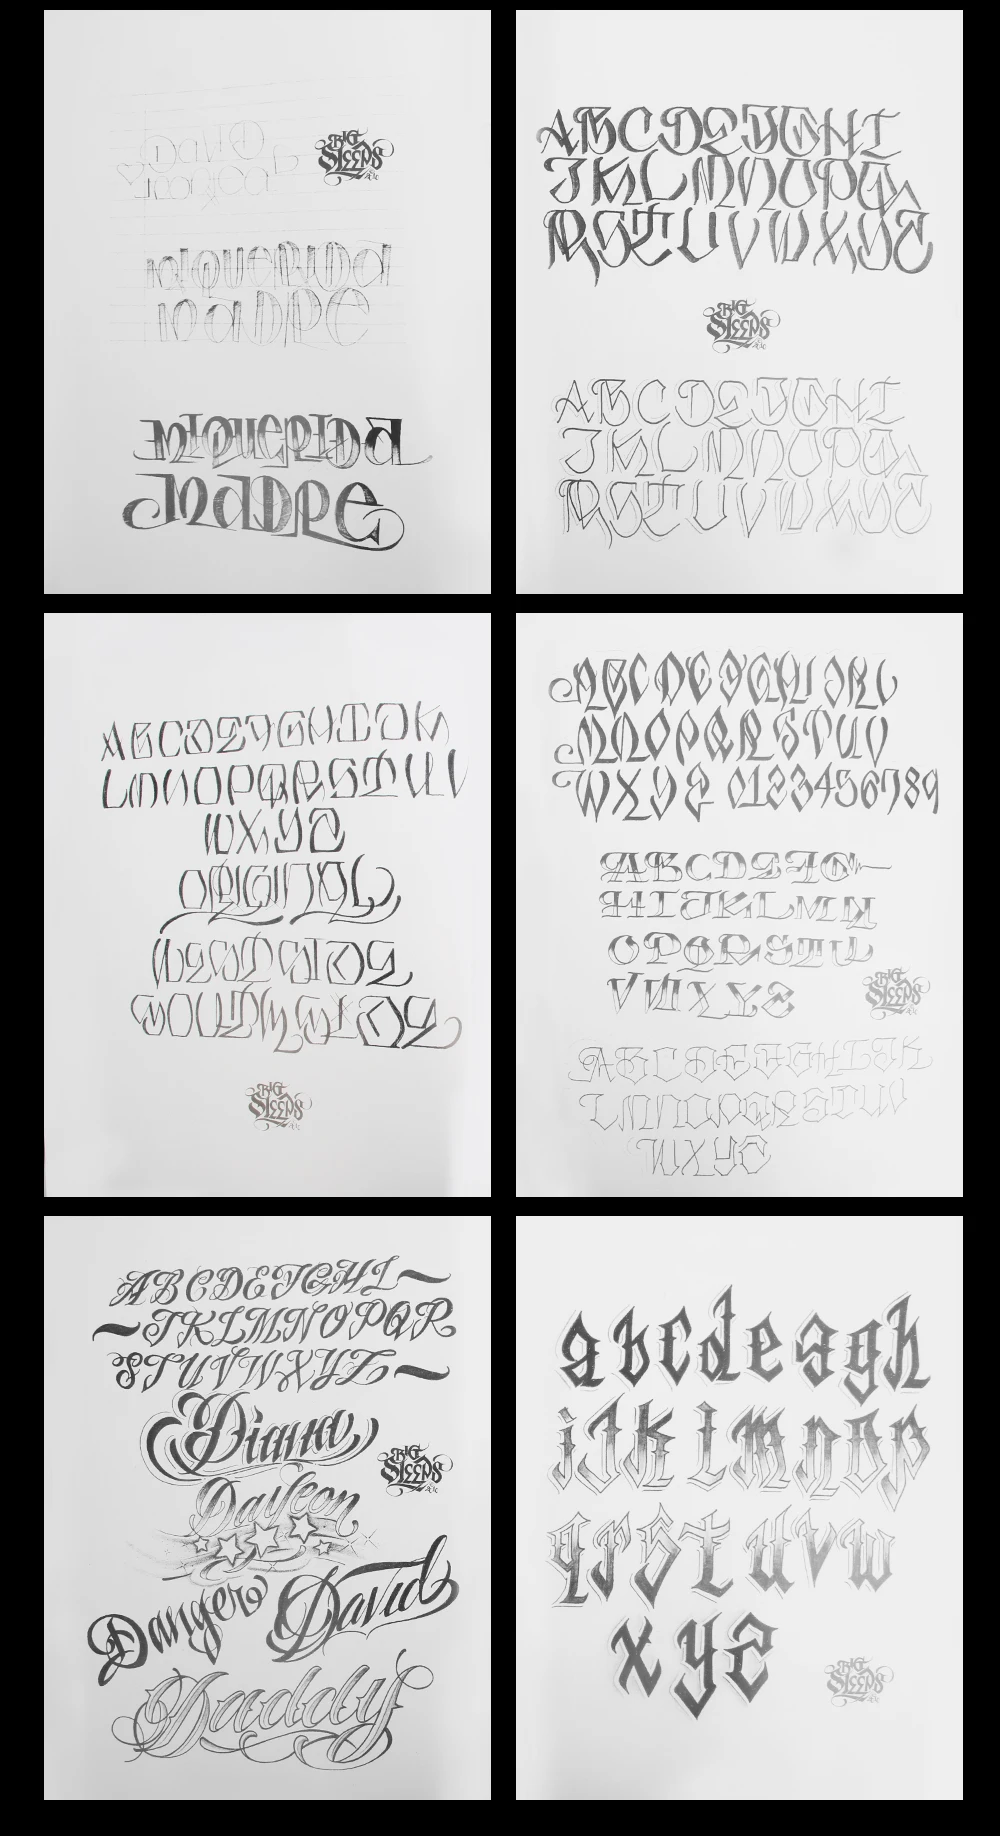 BIG
SLEEPS
MI QUERIDA
MADRE
MI QUERIDA
MADRE
ABCDEFGHI
JKLMNOPQ
RSTUVWXYZ
BIG
SLEEPS
ABCDEFGHI
JKLMNOPQ
RSTUVWXYZ
ABCDEFGHIJK
LMNOPQRSTUV
WXYZ
ORIGINAL
BIG
SLEEPS
ABCDEFGHIJKL
MNOPQRSTUV
WXYZ 0123456789
ABCDEFG
HIJKLMN
OPQRSTU
VWXYZ
BIG
SLEEPS
ABCDEFGHIJK
LMNOPQRSTUV
WXYZ
ABCDEFGHI
JKLMNOPQR
STUVWXYZ
Diana
BIG
SLEEPS
Danger
David
Daddy
abcdefgh
ijklmnop
qrstuvw
xyz
BIG
SLEEPS